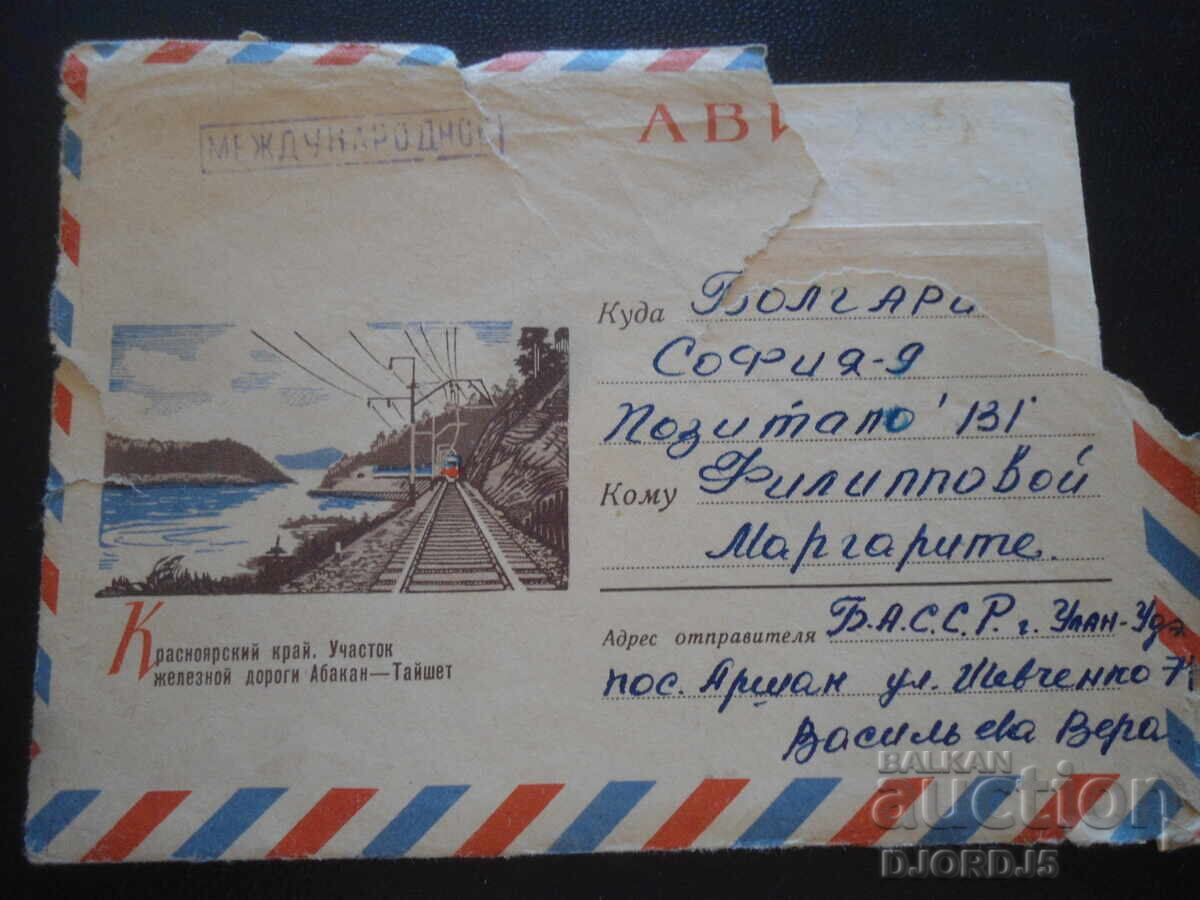 МЕЖДУНАРОДНОЕ
АВИ
Куда БОЛГАРИ
СОФИЯ-9
Позитано 131
Кому Филипповой
Маргарите.
Адрес отправителя Б.А.С.С.Р. г. Улан-Удэ
пос. Аршан ул. Шевченко 71
Васильева Вера
Красноярский край. Участок
железной дороги Абакан—Тайшет
BALKAN
auction
DJORDJ5